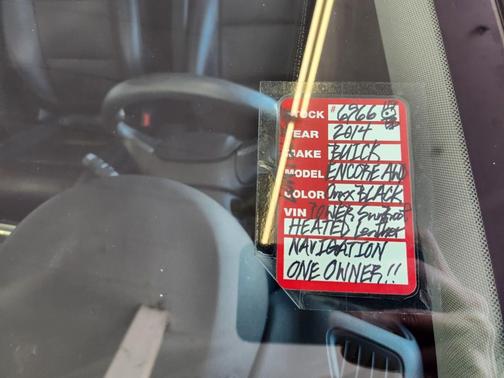 STOCK #6966
YEAR 2014
MAKE BUICK
MODEL ENCORE AWD
COLOR Onyx BLACK
VIN POWER Sunroof
HEATED Leather
NAVIGATION
ONE OWNER!!